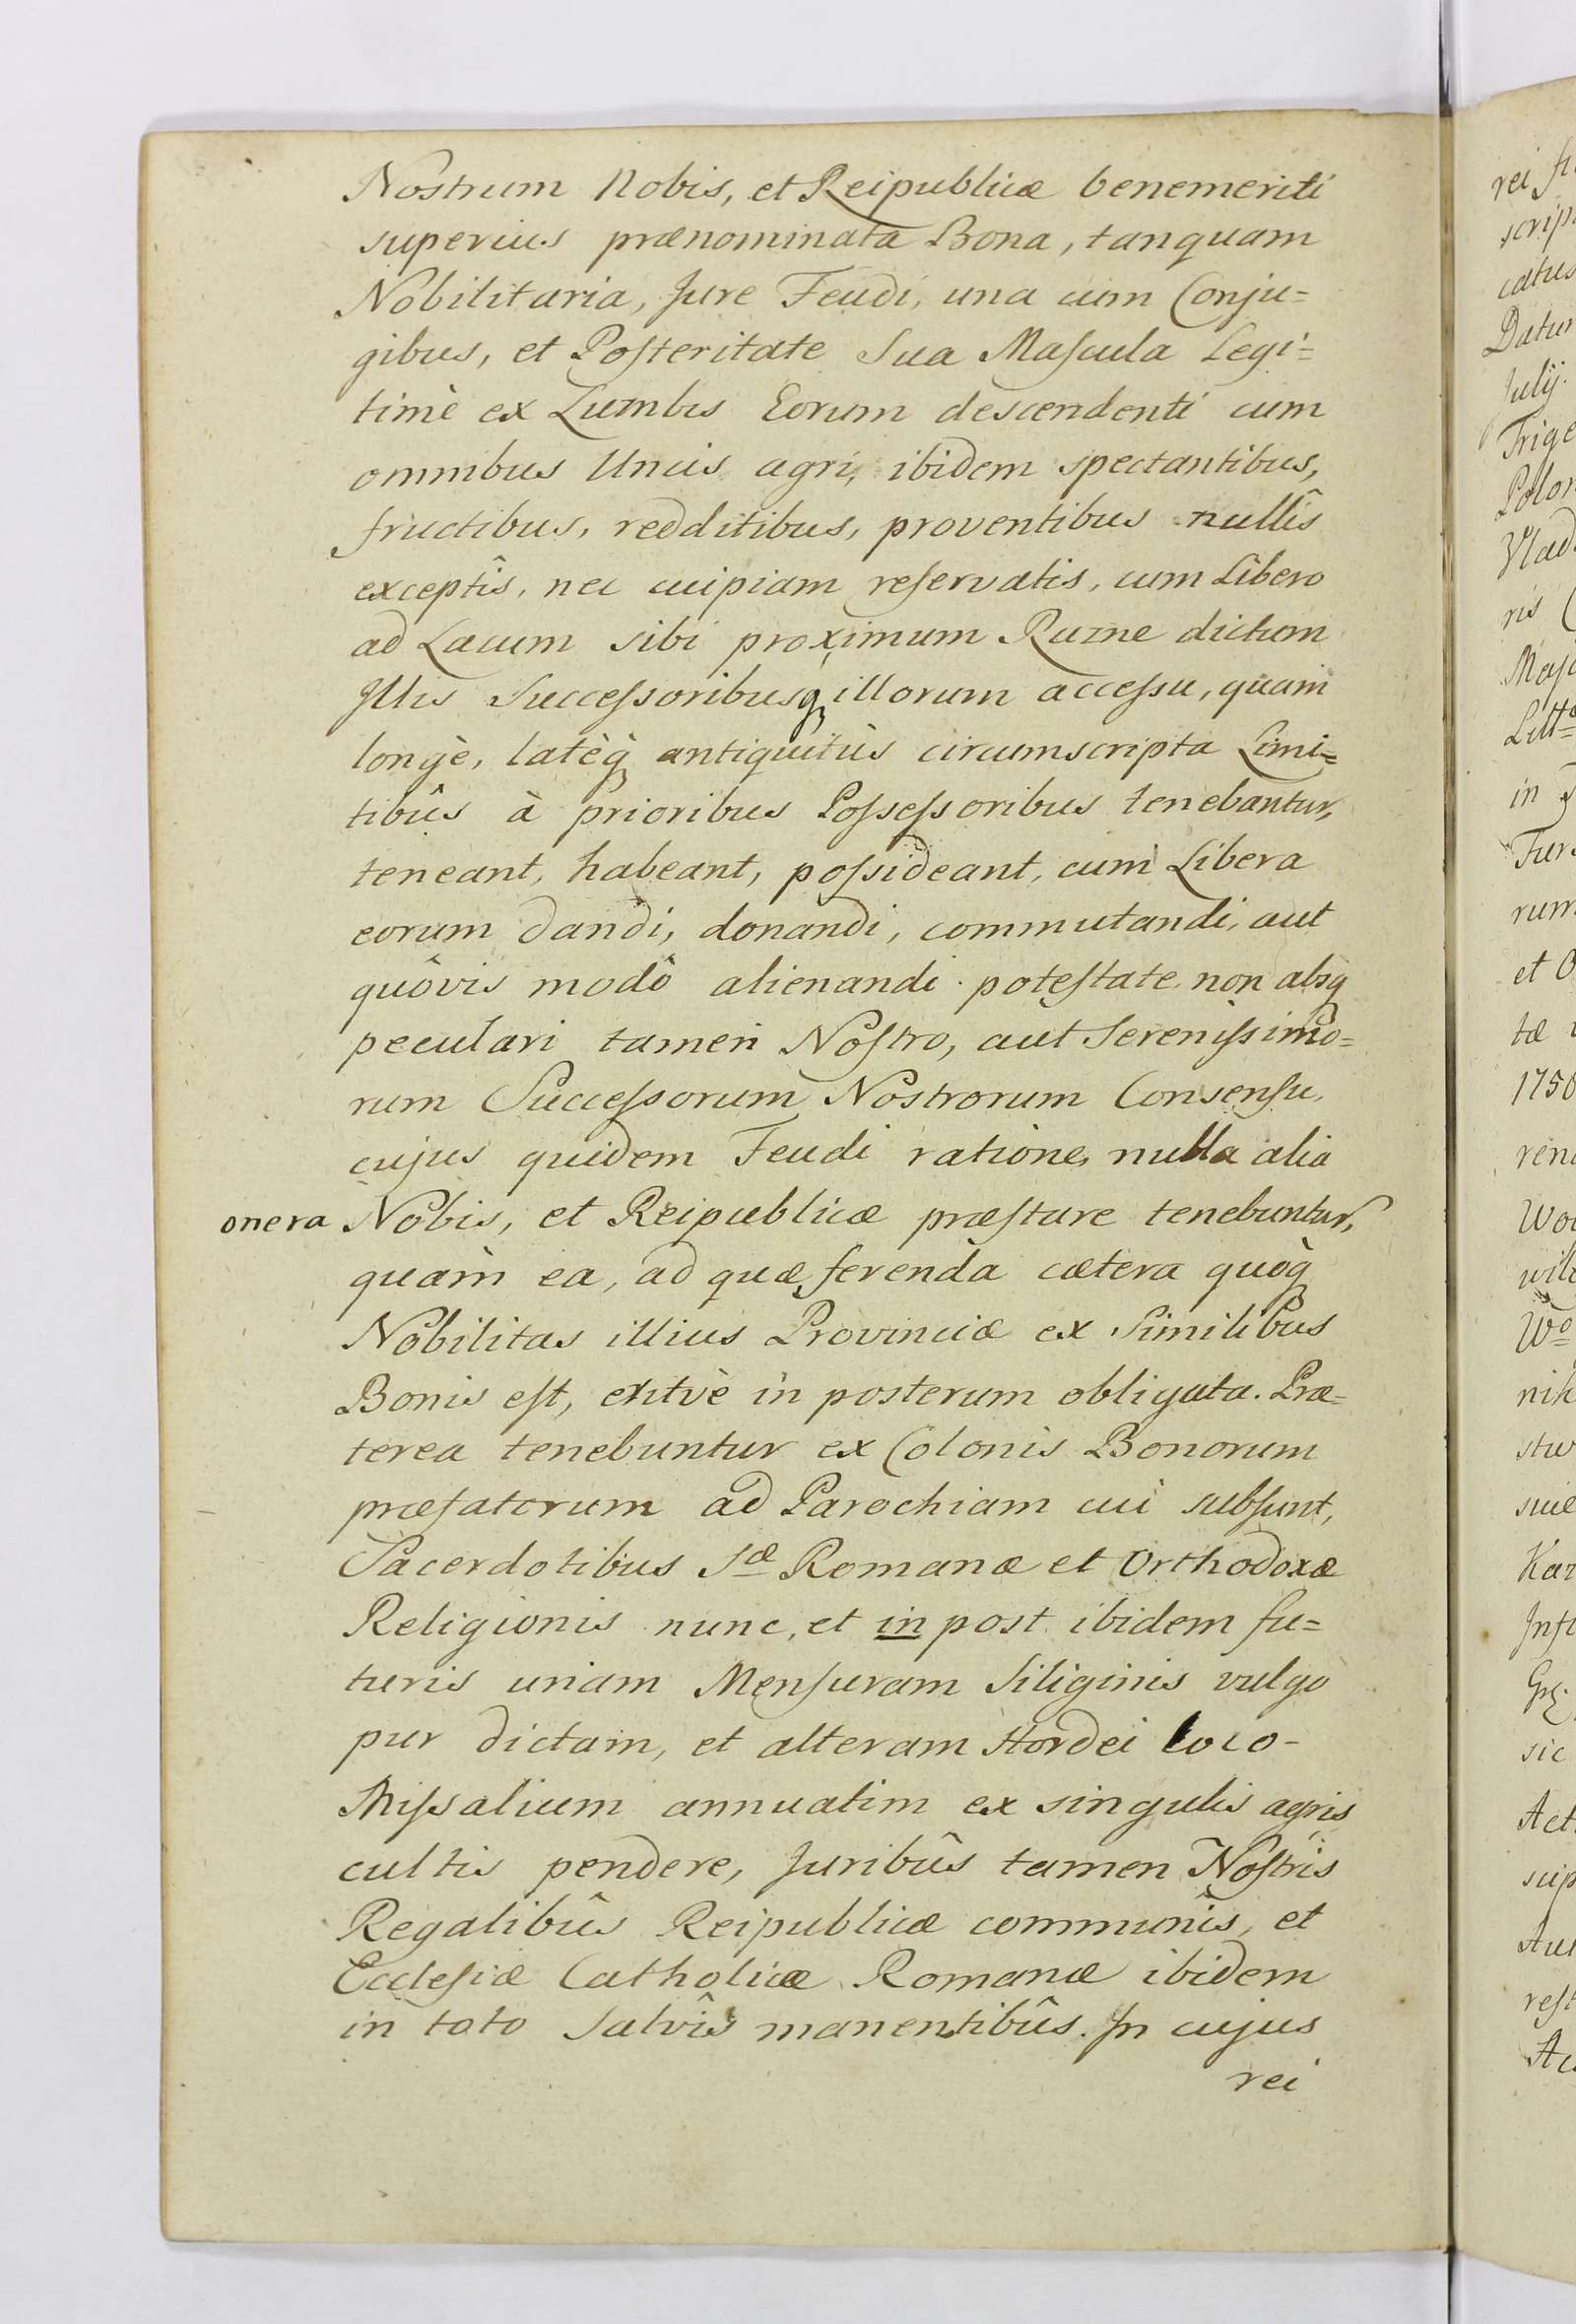 Nostrum Nobis, et Reipublicæ benemeriti
superius prænominata Bona, tanquam
Nobilitaria, Jure Feudi, una cum Conju=
gibus, et Poſteritate Sua Maſcula Legi=
timè ex Lumbis Eorum descendenti cum
omnibus Uncis agri, ibidem spectantibus,
fructibus, redditibus, proventibus nullîs
exceptîs, nec cuipiam reſervatis, cum Libero
ad Lacum sibi proximum Rurne dictum
Illis Succeſsoribusq illorum acceſsu, quam
longè, latèq̀ antiquitùs circumscripta Limi=
tibûs à prioribus Poſseſsoribus tenebantur,
teneant, habeant, poſsideant, cum Libera
eorum dandi, donandi, commutandi, aut
quôvis modô alienandi poteſtate, non absq
peculari tamen Noſtro, aut Sereniſsimo=
rum Succeſsorum Nostrorum Consenſu,
cujus quidem Feudi ratione, nulla alia
onera Nobis, et Reipublicæ præſtare tenebuntur,
quàm ea, ad quæ ferenda cætera quòq̀
Nobilitas illius Provinciæ ex Similibus
Bonis eſt, eritvè in posterum obligata. Præ=
terea tenebuntur ex Colonis Bonorum
præfatorum ad Parochiam cui subſunt,
Sacerdotibus Sæ Romanæ et Orthodoxæ
Religionis nunc, et in post ibidem fu=
turis unam Menſuram Siliginis vulgo
pur dictam, et alteram Hordei loco-
Miſsalium annuatim ex singulis agris
cultis pendere, Juribûs tamen Noſtris
Regalibûs Reipublicæ communîs, et
Eccleſiæ Catholicæ Romanæ ibidem
in toto Salvîs manentibûs. In cujus
rei